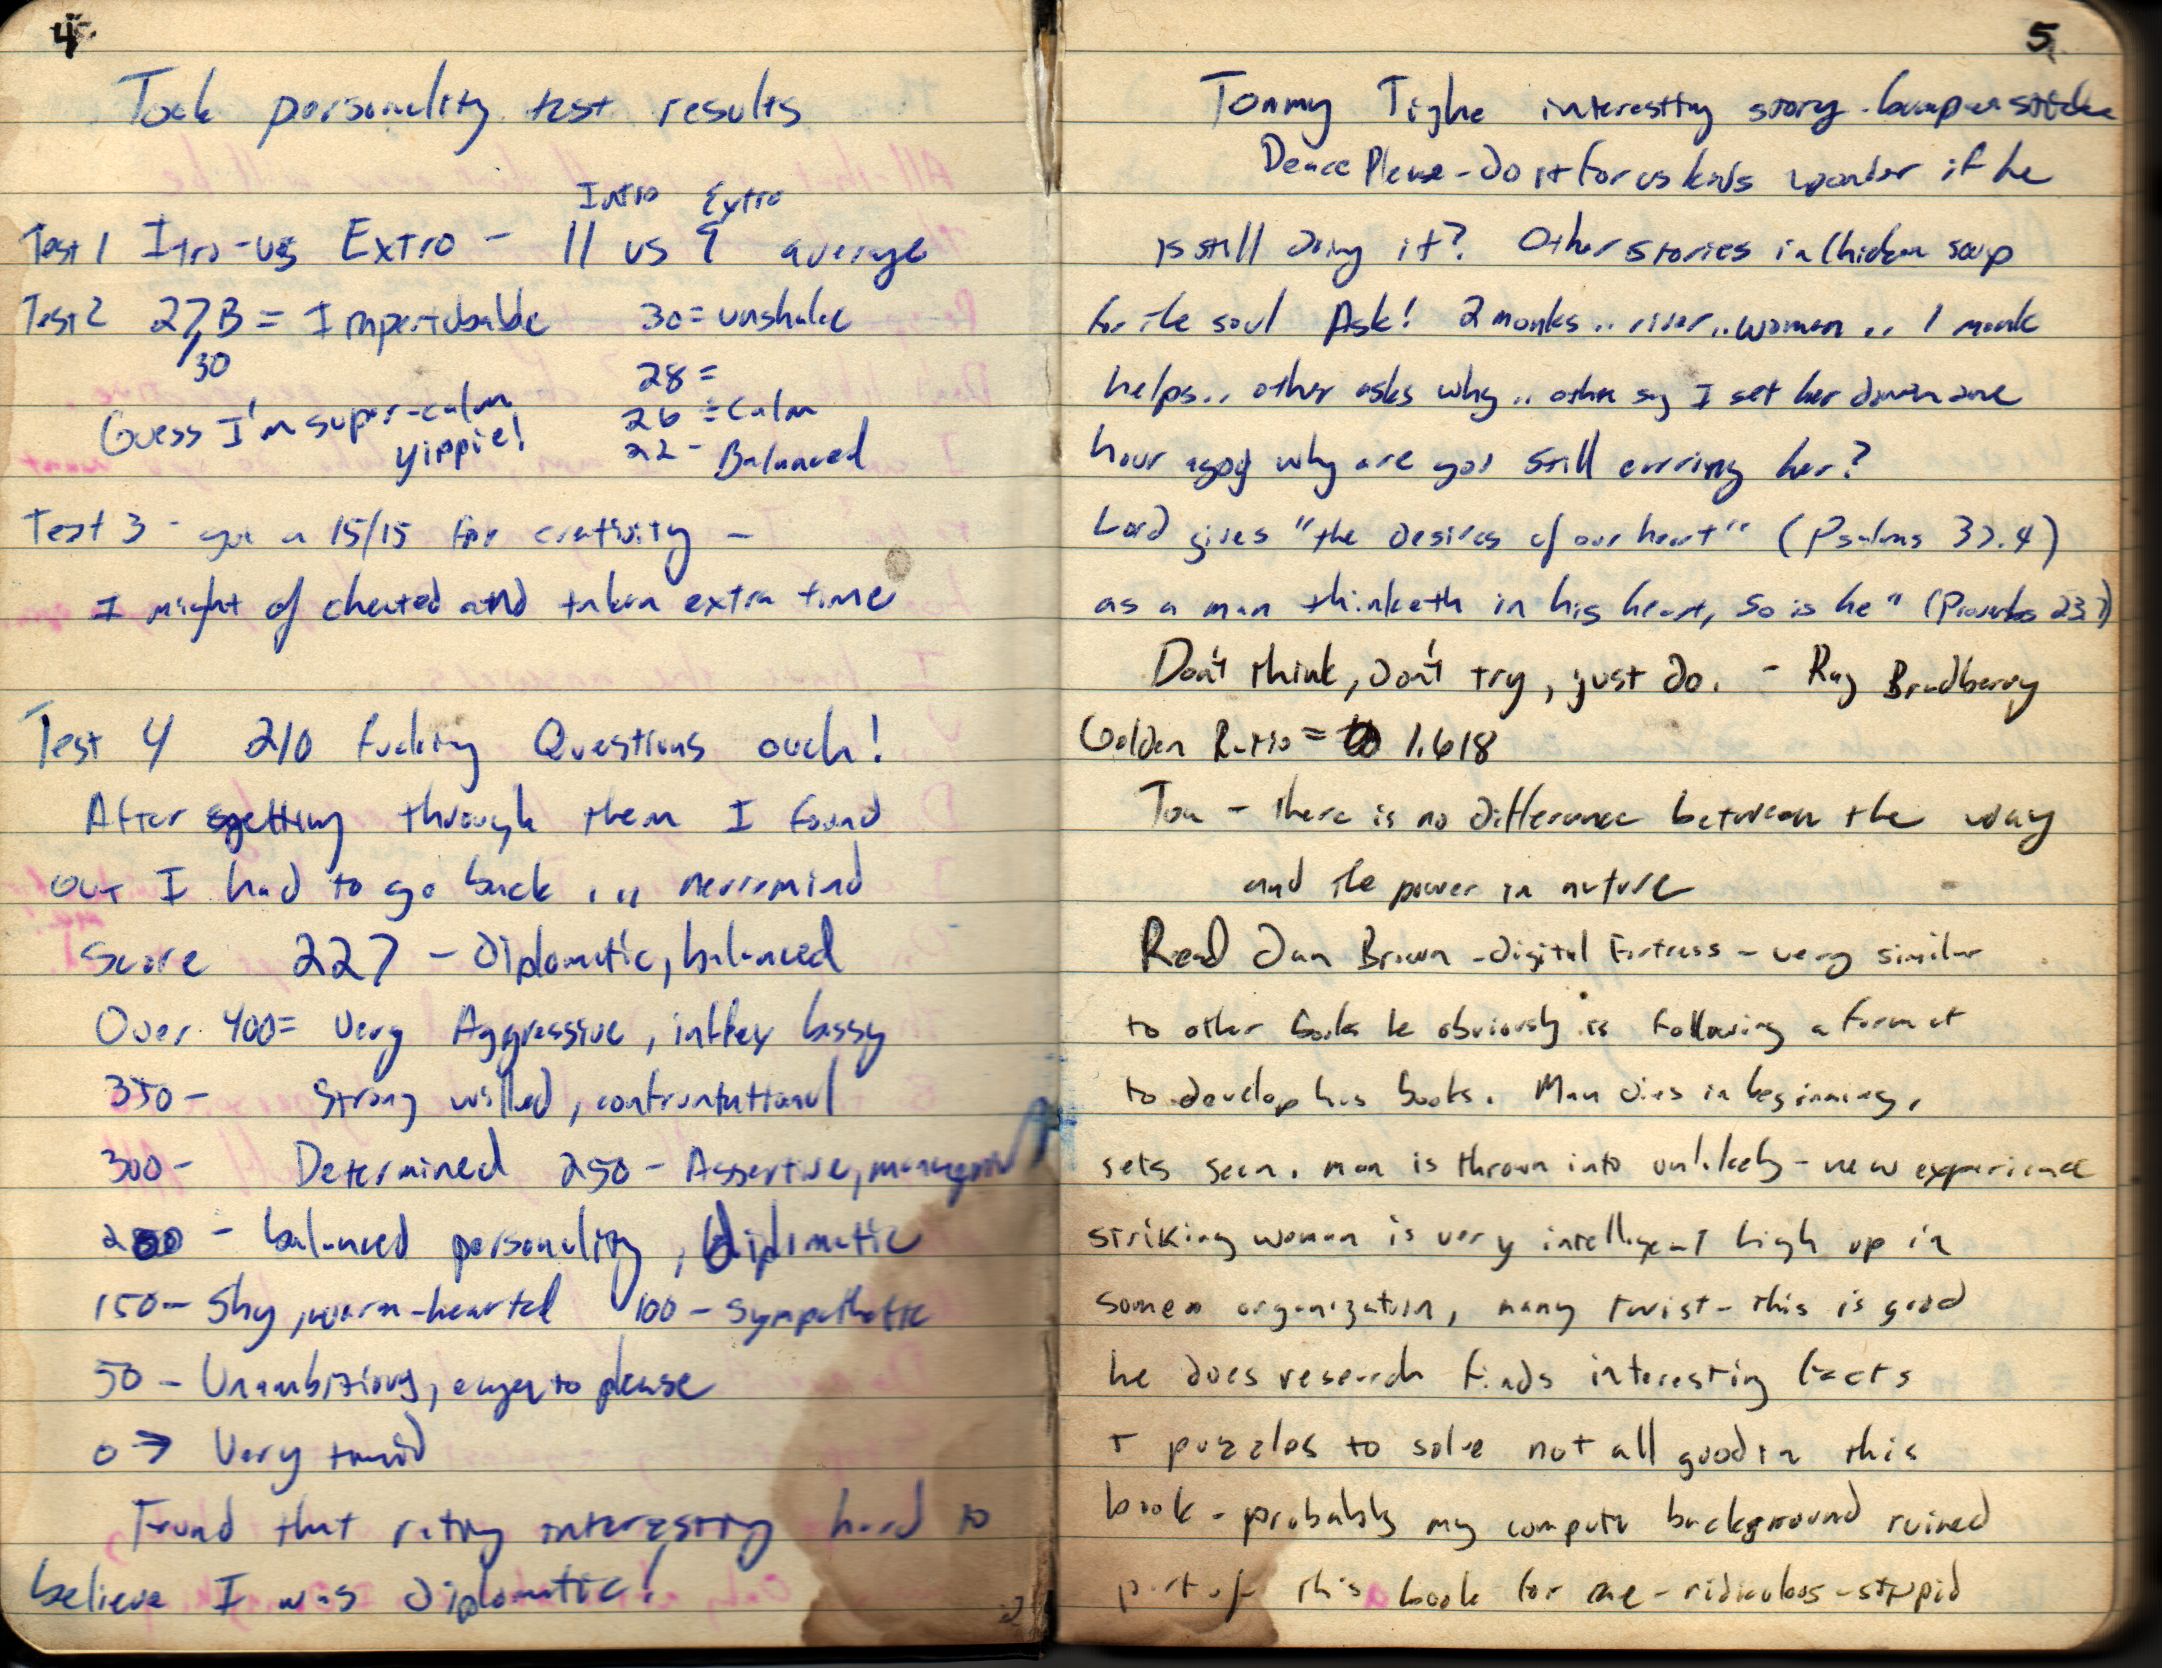 4
Took personality test results
Intro Extro
Test 1 Itro-vs Extro - 11 vs 9 average
Test 2 27B = Imperturbable 30 = unshake
/30
28 =
26 = Calm
Guess I'm super-calm
yippie!
22 - Balanced
Test 3 - got a 15/15 for creativity -
I might of cheated and taken extra time
Test 4 210 fucking Questions ouch!
After getting through them I found
out I had to go back ... nevermind
Score 227 - diplomatic, balanced
Over 400 = Very Aggressive, bossy
350 - Strong willed, confrontational
300 - Determined 250 - Assertive,
200 - balanced personality, diplomatic
150 - Shy, warm-hearted 100 - Sympathetic
50 - Unambitious, eager to please
0 → Very timid
Found that rating interesting hard to
believe I was diplomatic!
5
Tommy Tighe interesting story - bumper sticker
Peace Please - do it for us kids wonder if he
is still doing it? Other stories in Chicken soup
for the soul Ask! 2 monks .. river .. woman .. 1 monk
helps .. other asks why .. other say I set her down one
hour agog why are you still carrying her?
Lord gives "the desires of our heart" (Psalms 37.4)
as a man thinketh in his heart, so is he" (Proverbs 23.7)
Don't think, don't try, just do. - Ray Bradberry
Golden Ratio = 1.618
Tou - there is no difference between the way
and the power in nature
Read Dan Brown - digital Fortress - very similar
to other books he obviously is following a format
to develop his books. Man dies in beginning,
sets seen. man is thrown into unlikely - new experience
striking woman is very intelligent high up in
some organization, many twist - this is good
he does research finds interesting facts
+ puzzles to solve not all good in this
book - probably my computer background ruined
part of this book for me - ridiculous - stupid